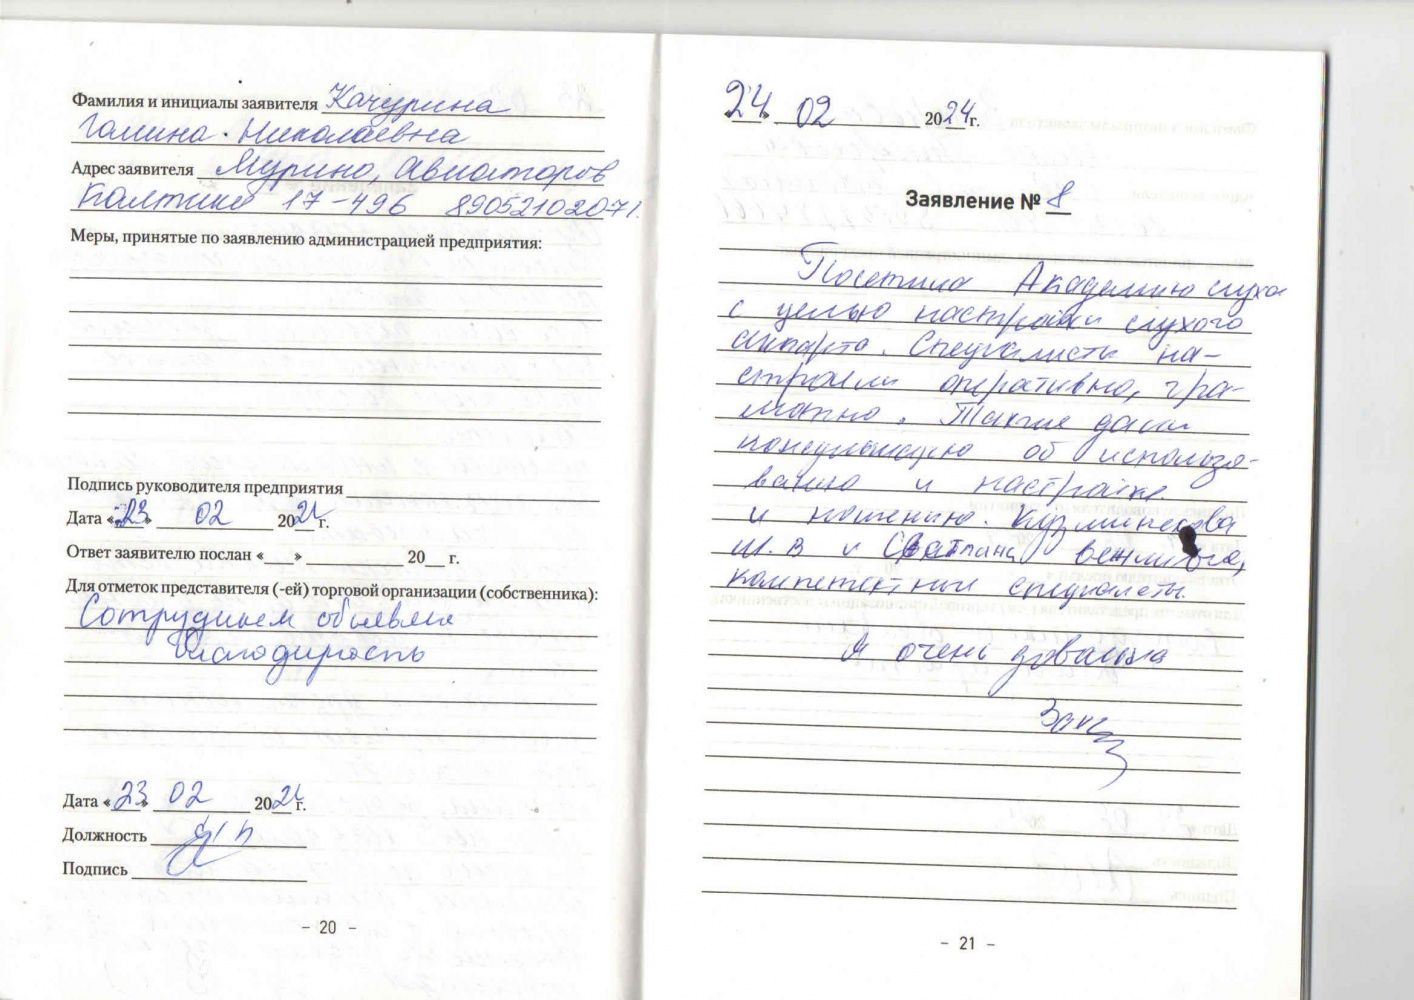 Фамилия и инициалы заявителя Качурина
Галина Николаевна
Адрес заявителя Мурино, Авиаторов
Балтики 17-496 89052102071.
Меры, принятые по заявлению администрацией предприятия:
Подпись руководителя предприятия
Дата «23» 02 2024 г.
Ответ заявителю послан « » 20 г.
Для отметок представителя (-ей) торговой организации (собственника):
Сотрудникам объявлена
благодарность
Дата «23» 02 2024 г.
Должность
Подпись
- 20 -
24 02 2024 г.
Заявление № 8
Посетила Академию слуха
с целью настройки слухого
аппарта. Специалисты на-
строили оперативно, гра-
мотно. Также дали
консультацию об использо-
ванию и настройке
и ношению. Кузьминскова
М. В и Светлана вежливые,
компетентные специалисты.
Я очень довольна
- 21 -